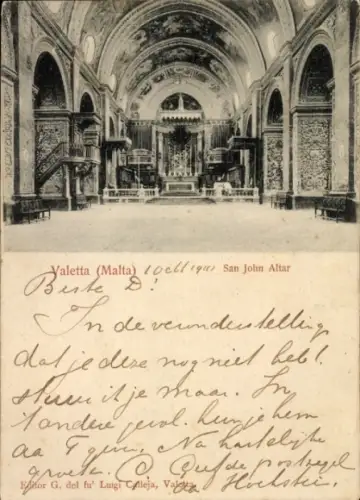 Valetta (Malta) 10 Oct 1911 San John Altar
Beste D!
In de veronderstelling
dat je deze nog niet hebt
stuur ik je maar. In
't andere geval. kun je hem
aa T geven. Na hartelijke
groeten. C Geef de postzegel
aa
Editor G. del fu' Luigi Calleja, Valetta